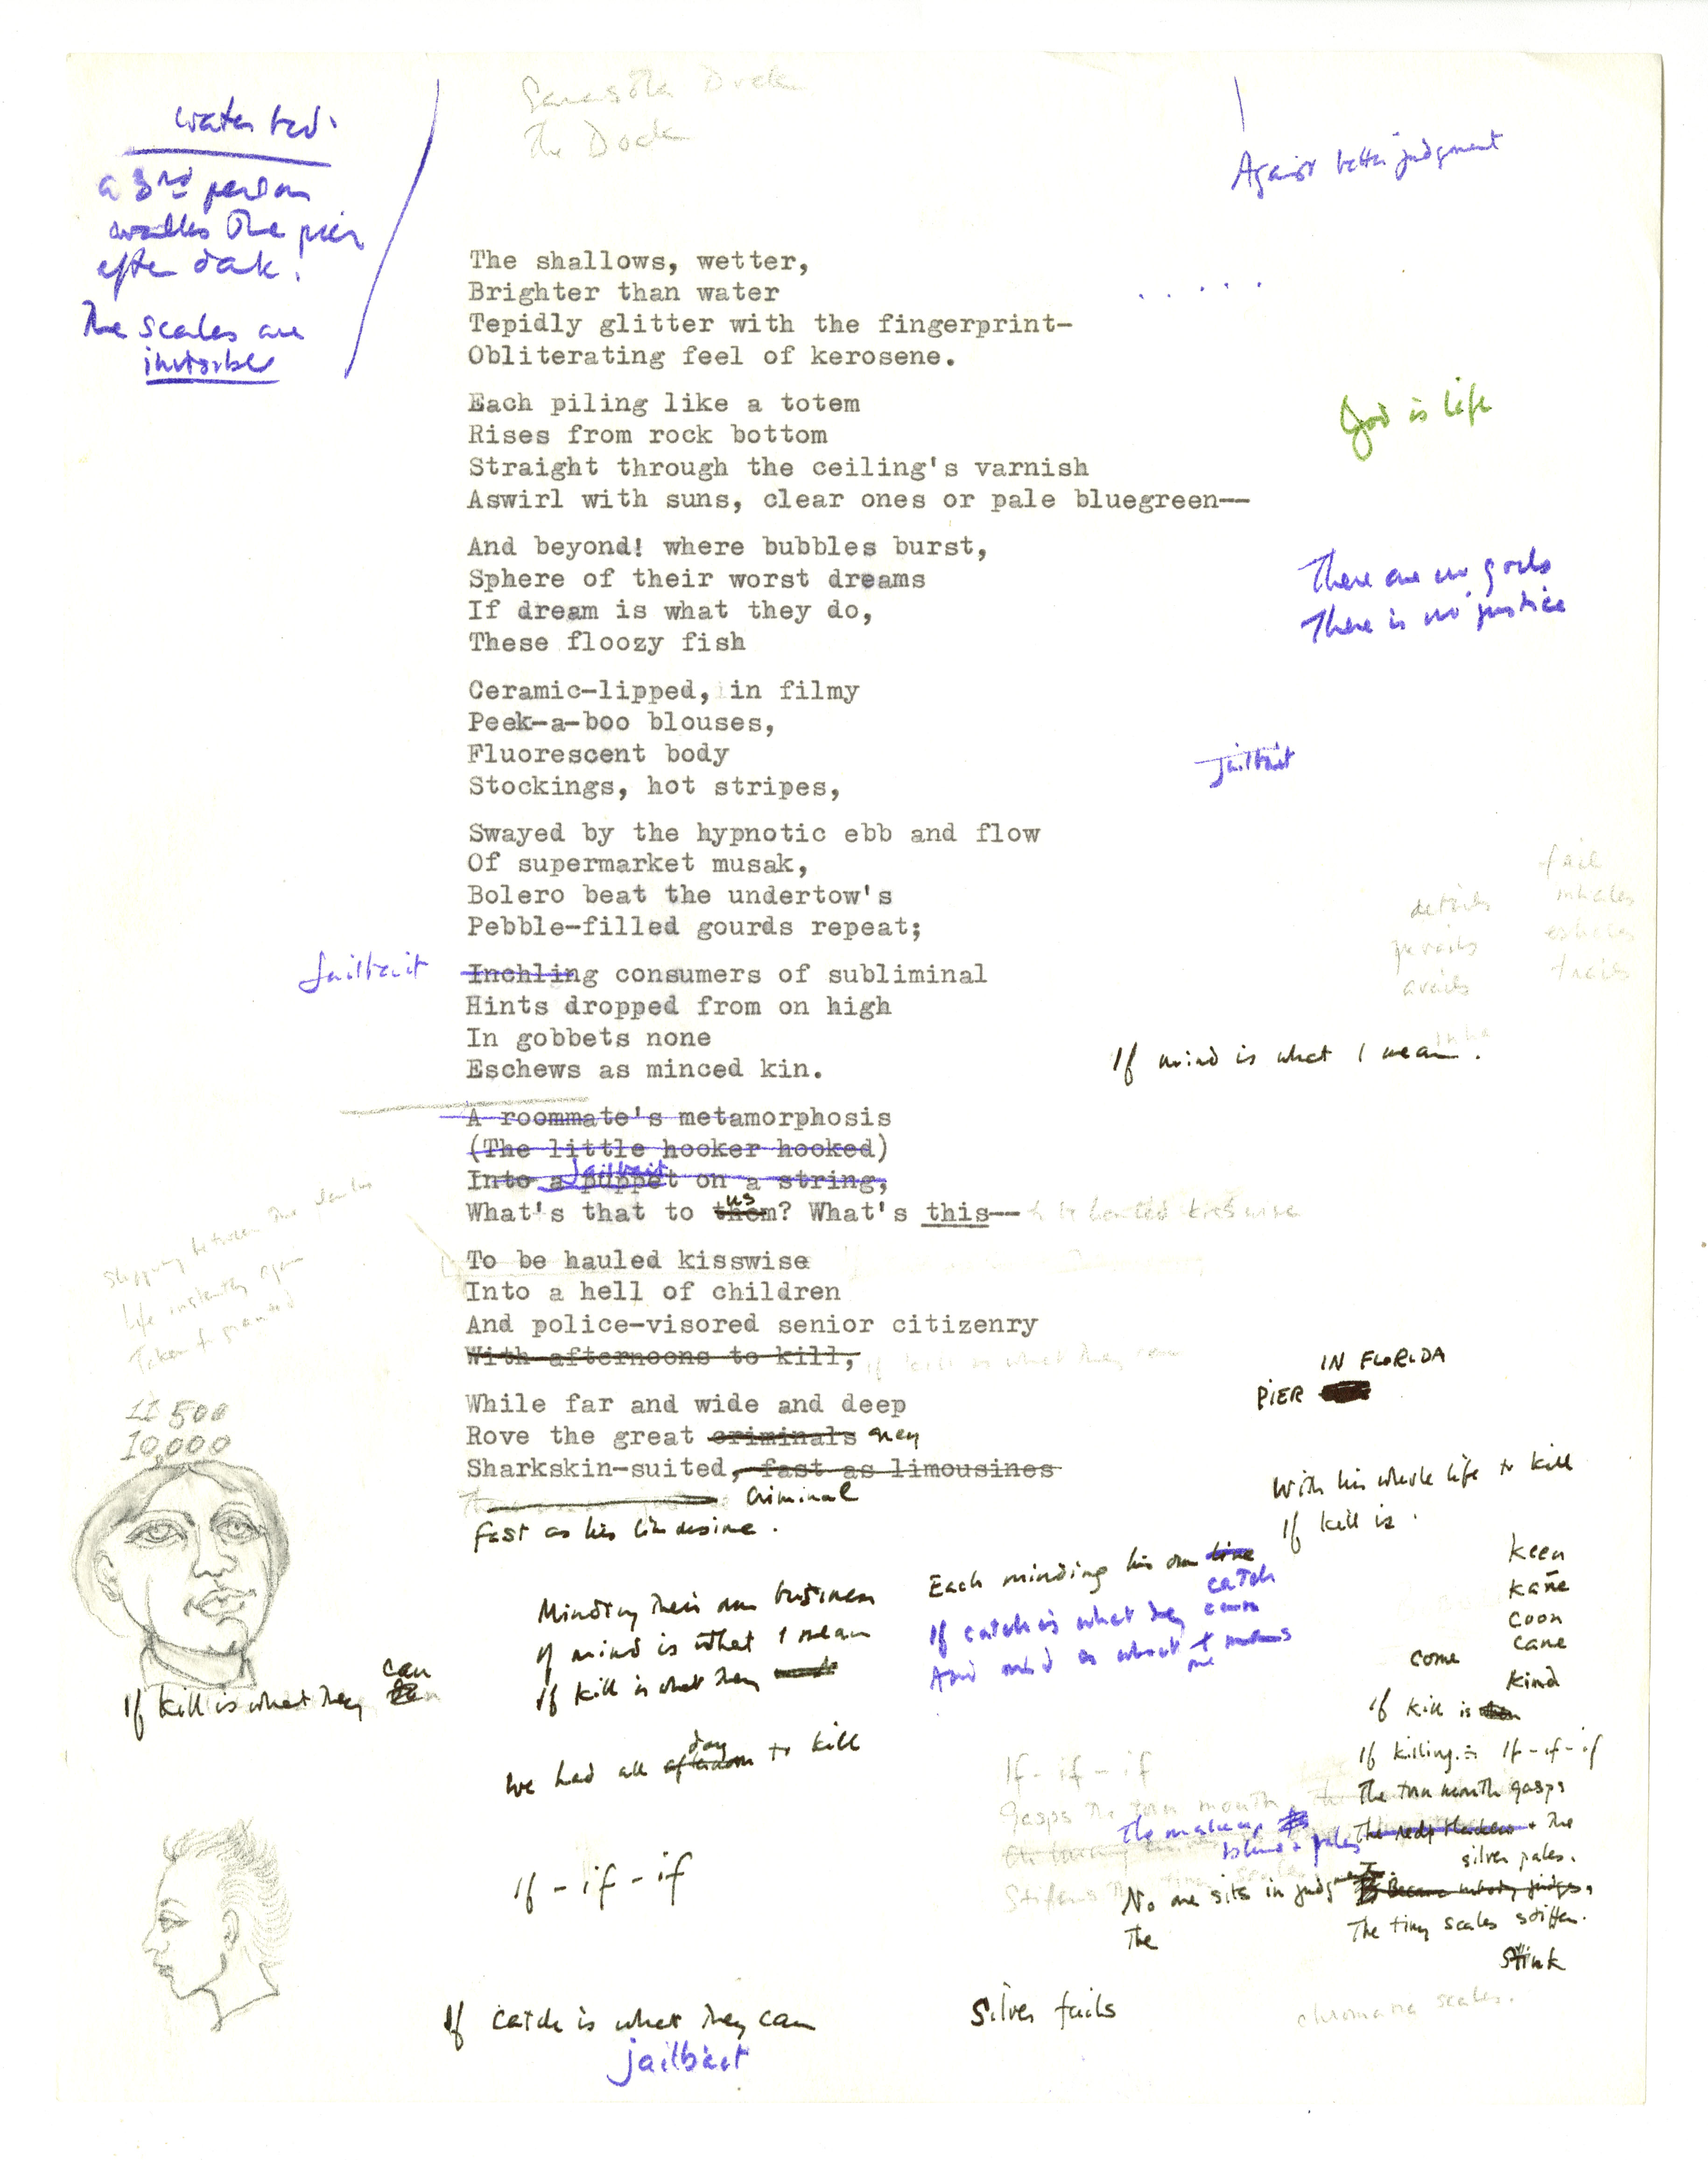 Sarasota Dock
The Dock
water bed.
a 3rd person
walks the pier
after dark.
The scales are
invisible
Against better judgment
The shallows, wetter,
Brighter than water
. . . . .
Tepidly glitter with the fingerprint-
Obliterating feel of kerosene.
Each piling like a totem
God is life
Rises from rock bottom
Straight through the ceiling's varnish
Aswirl with suns, clear ones or pale bluegreen--
And beyond! where bubbles burst,
Sphere of their worst dreams
There are no gods
If dream is what they do,
There is no justice
These floozy fish
Ceramic-lipped, in filmy
Peek-a-boo blouses,
Fluorescent body
jailbait
Stockings, hot stripes,
Swayed by the hypnotic ebb and flow
Of supermarket musak,
Bolero beat the undertow's
Pebble-filled gourds repeat;
fail
details inhales
exhales
avails trails
Jailbait
Inchling consumers of subliminal
Hints dropped from on high
In gobbets none
Eschews as minced kin.
If mind is what I mean.
A roommate's metamorphosis
(The little hooker hooked)
Jailbait
Into a puppet on a string,
us
What's that to them? What's this-- to be hauled kisswise
To be hauled kisswise
Into a hell of children
And police-visored senior citizenry
With afternoons to kill, if kill is what they can
slipping between the scales
life instantly again
Taken for granted
IN FLORIDA
PIER
While far and wide and deep
Rove the great criminals grey
Sharkskin-suited, fast as limousines
Criminal
Fast as his limousine.
11 500
10,000
With his whole life to kill
If kill is.
Each minding his own line
catch
If catch is what they can
And mind is what I means
me
Minding their own business
If mind is what I mean
If kill is what they
can
If kill is what they
keen
kane
coon
cane
come
kind
If kill is
If killing is If-if-if
The torn mouth gasps
+ the
silver pales.
The tiny scales stiffen.
Stink
We had all afternoon to kill
day
If-if-if
Gasps the torn mouth,
The makeup
blend + pales
No one sits in judgment.
The
If - if - if
If catch is what they can
jailbait
Silver fails
chromatic scales.